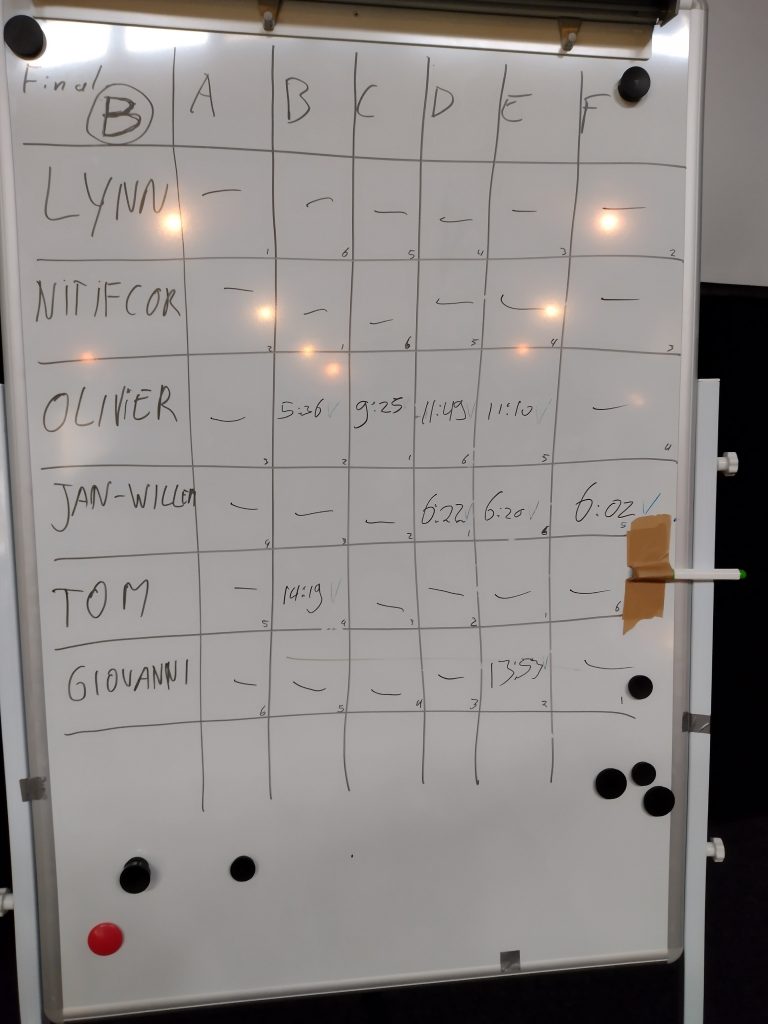 Final B A B C D E F
LYNN — — — — — —
1 6 5 4 3 2
NITIFCOR — — — — — —
2 1 6 5 4 3
OLIVIER — 5:36 ✓ 9:25 11:49 ✓ 11:10 ✓ —
3 2 1 6 5 4
JAN-WILLEM — — — 6:22 ✓ 6:20 ✓ 6:02 ✓
4 3 2 1 6 5
TOM — 14:19 ✓ — — — —
5 4 3 2 1 6
GIOVANNI — — — — 13:59 —
6 5 4 3 2 1